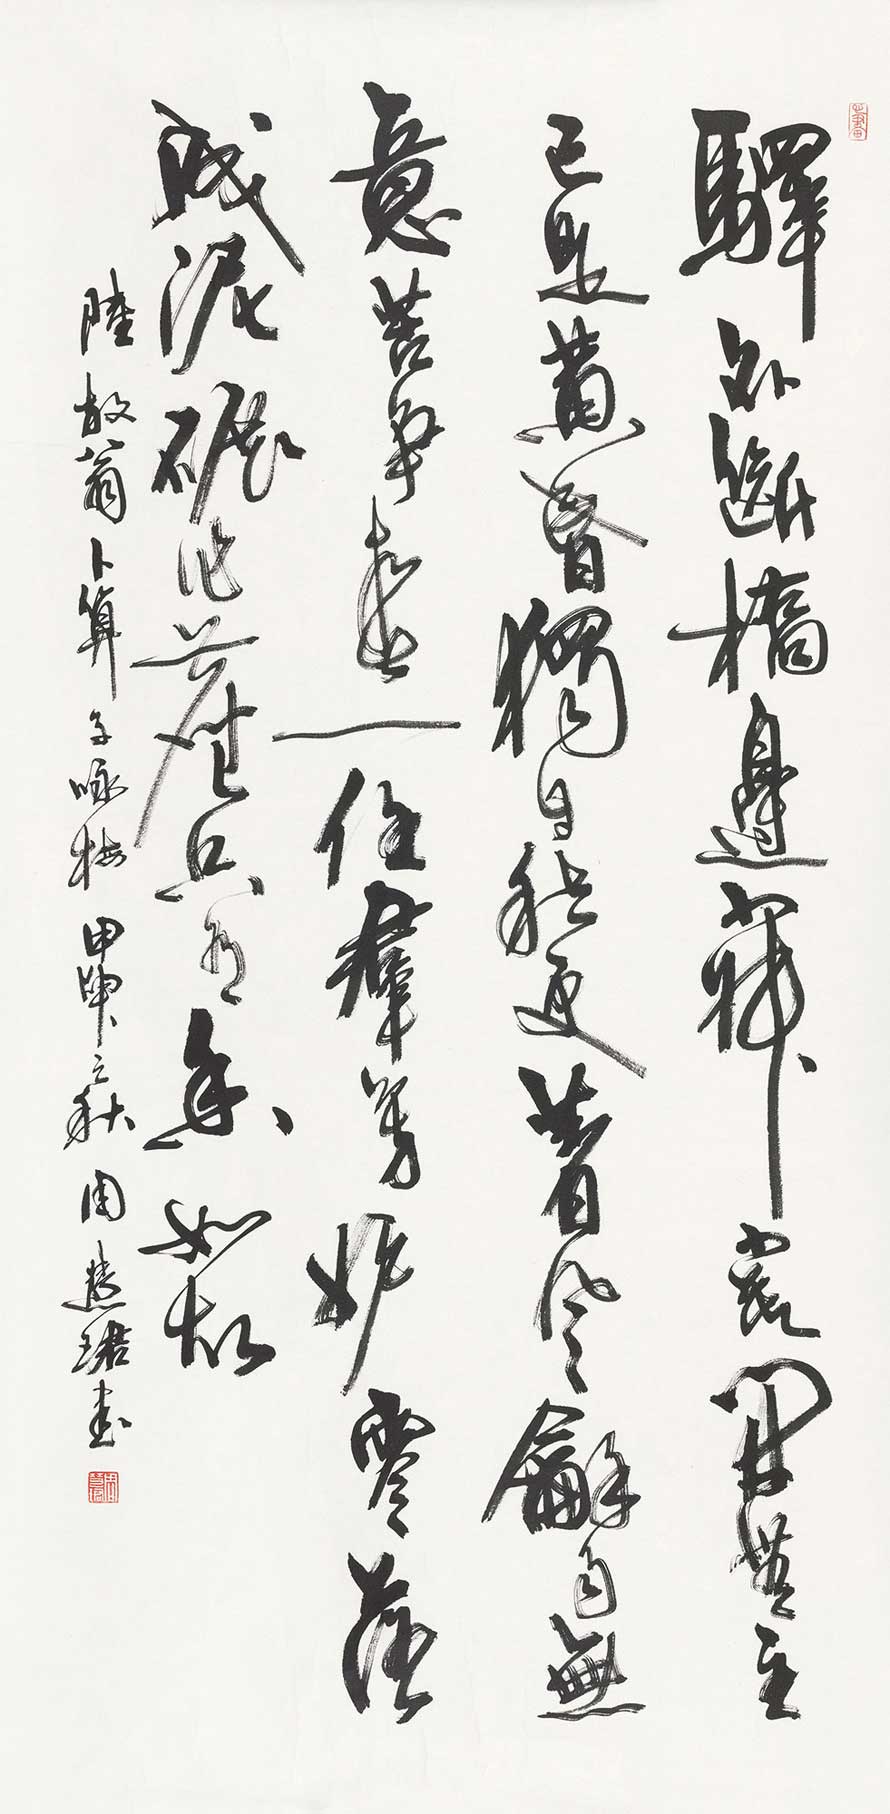 驛外斷橋邊寂寞開無主
已是黃昏獨自愁更著風龢雨無
意苦爭春一任群芳妒零落
成泥碾作塵只有香如故
陸放翁卜算子咏梅甲申之秋周慧珺書